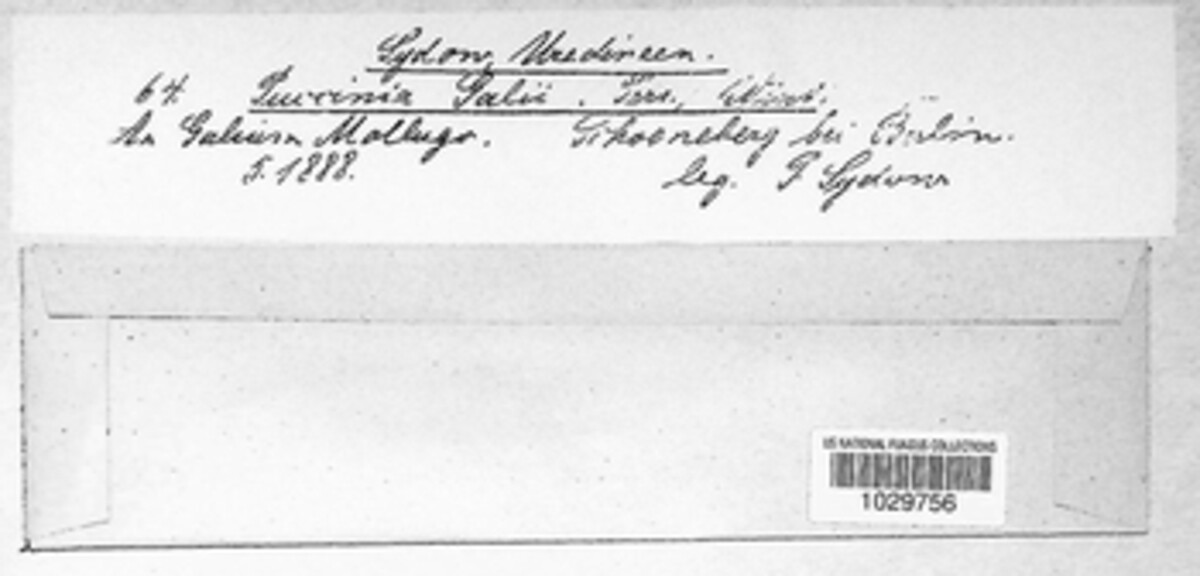 Sydow, Uredineen.
64. Puccinia Galii. Pers., Wint.
An Galium Mollugo. Schoeneberg bei Berlin.
5. 1888. leg. P Sydow
US NATIONAL FUNGUS COLLECTIONS
1029756